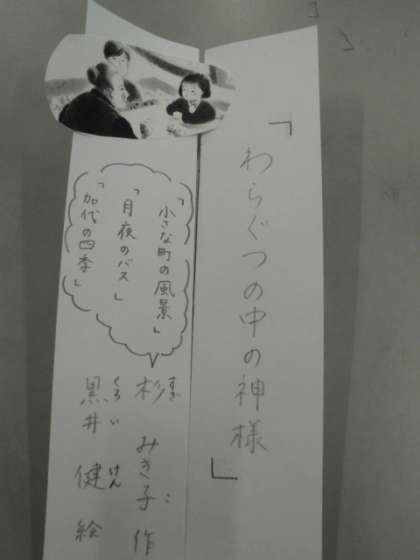 「わらぐつの中の神様」
「小さな町の風景」
「月夜のバス」
「加代の四季」
すぎ こ
杉 みき子 作
くろ い けん
黒井 健 絵